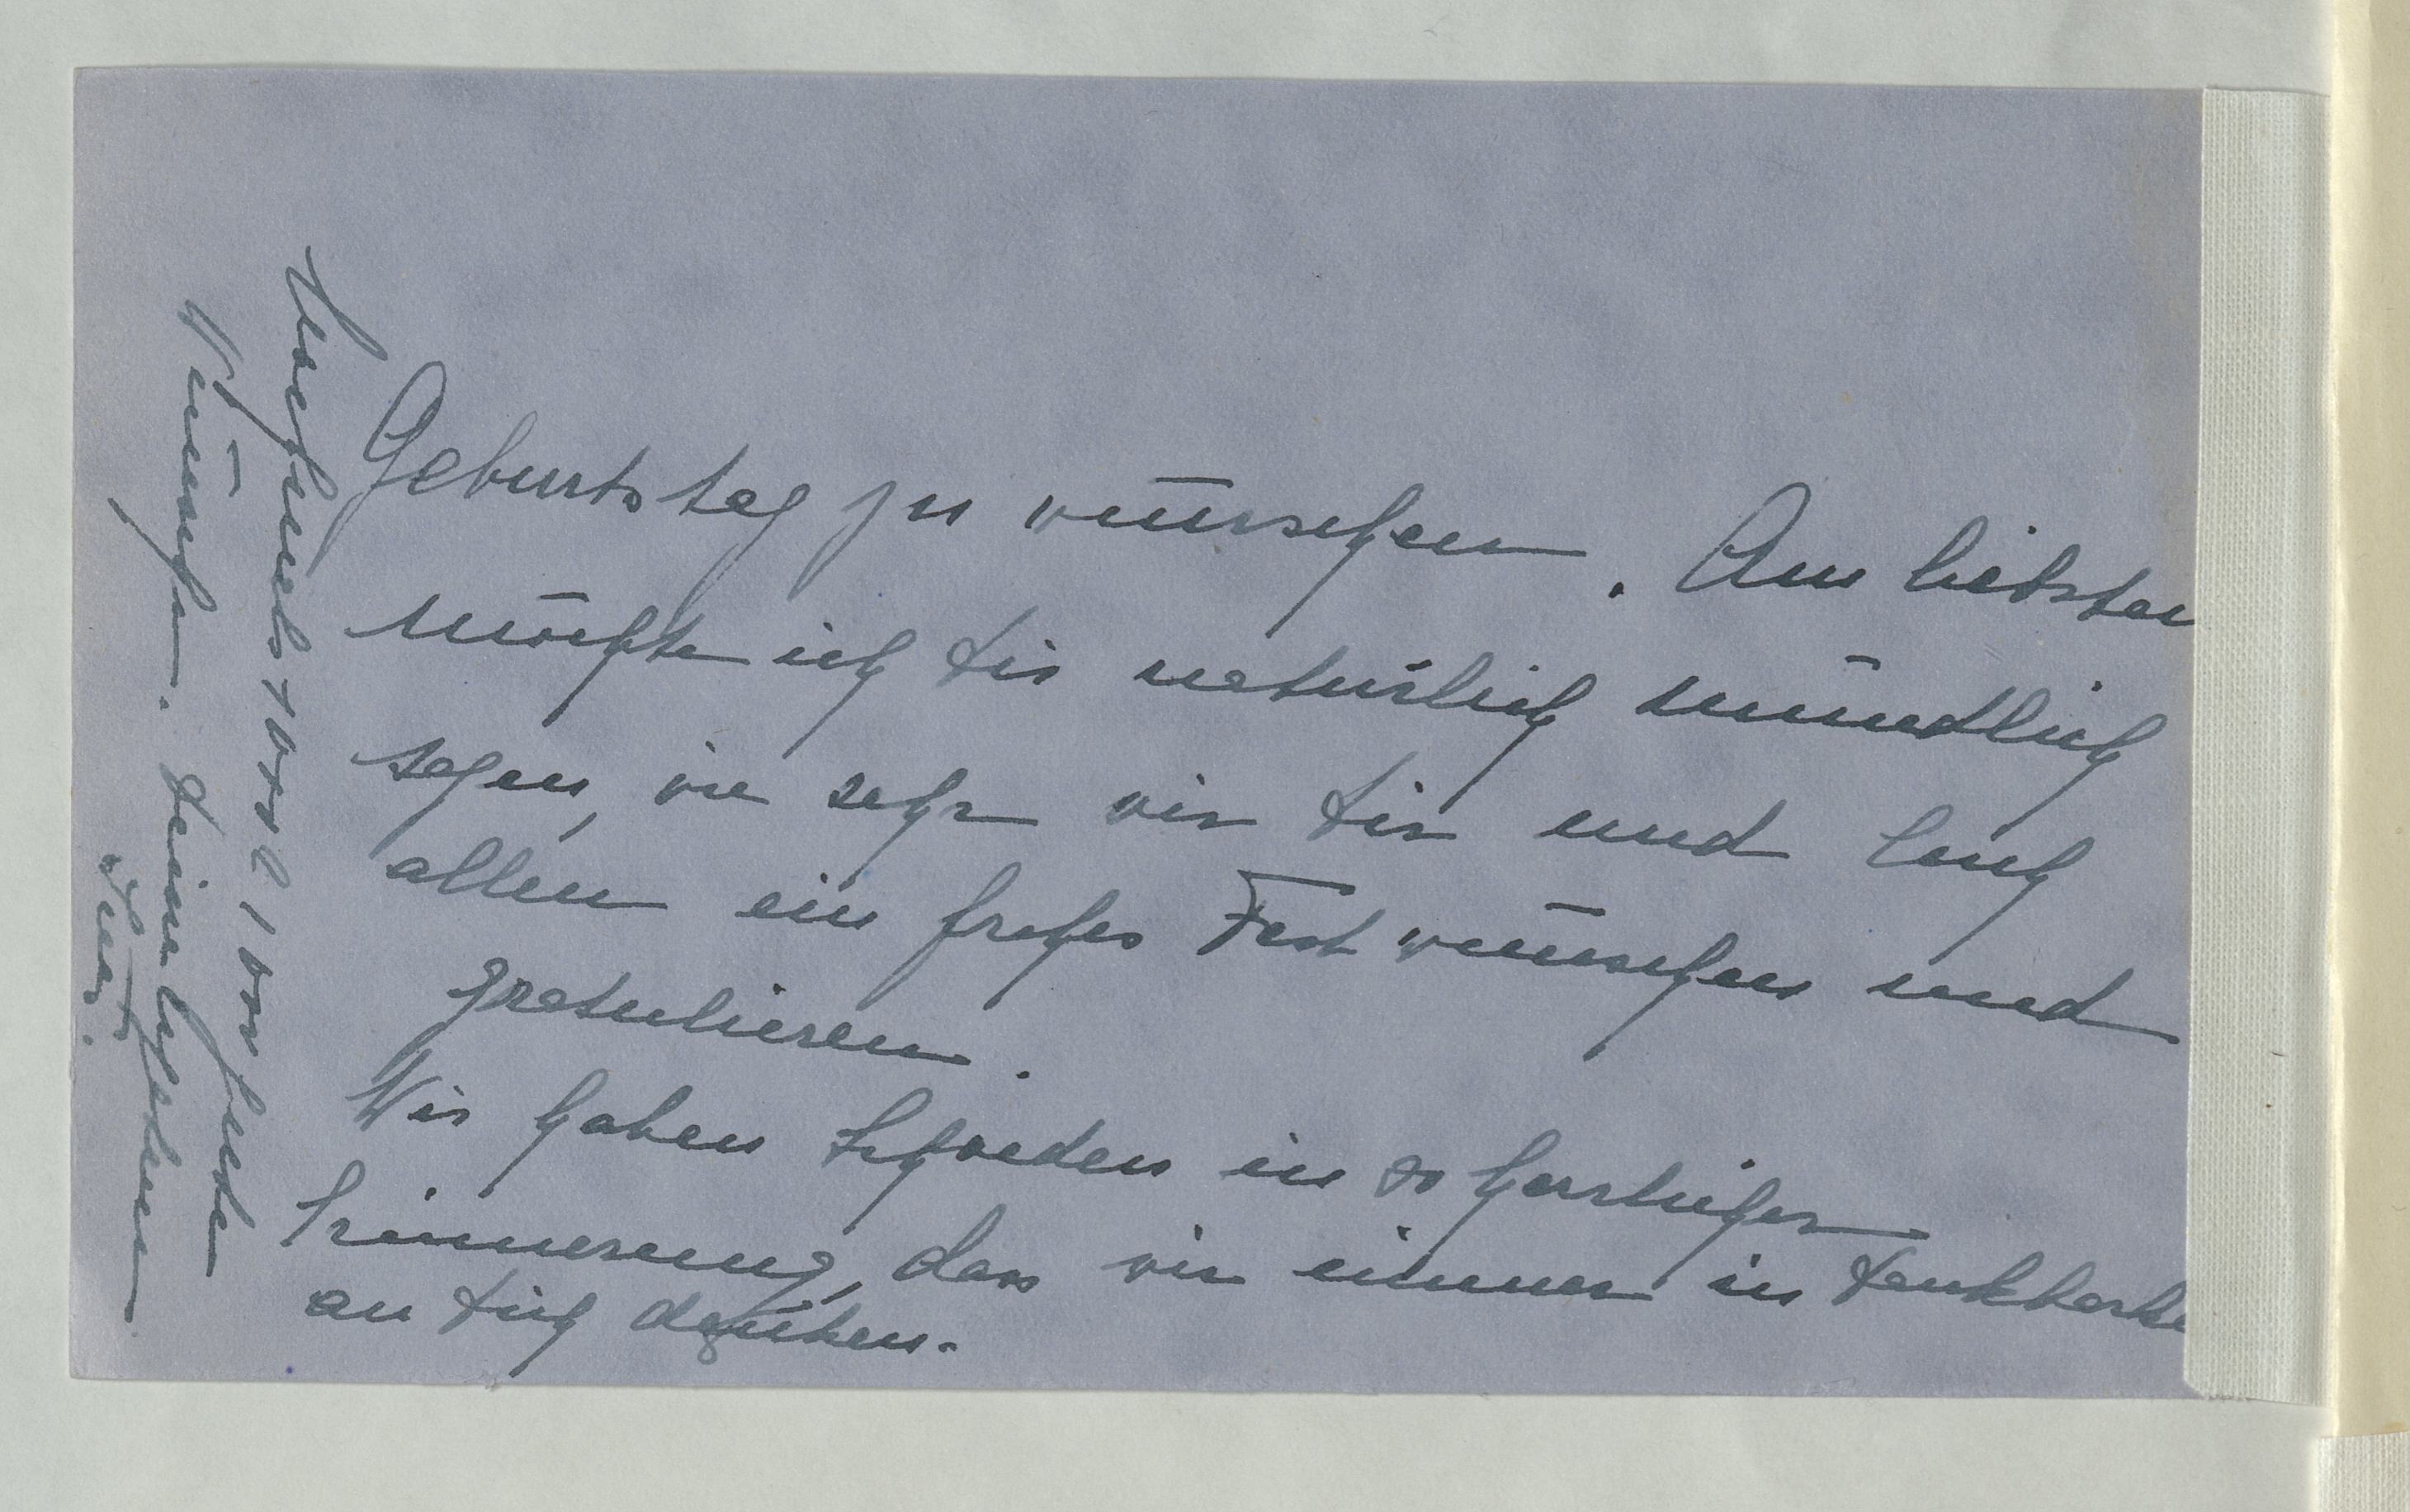 Geburtstag zu wünschen. Am liebsten
möchte ich Dir natürlich mündlich
sagen, wie sehr wir Dir und Euch
allen ein frohes Fest wünschen und
gratulieren.
Wir haben Schweden in so herrlicher
Erinnerung, dass wir immer in Dankbarkei
an Dich denken.
Nochmals 1000 & 1000 gute
Wünsche. Deine